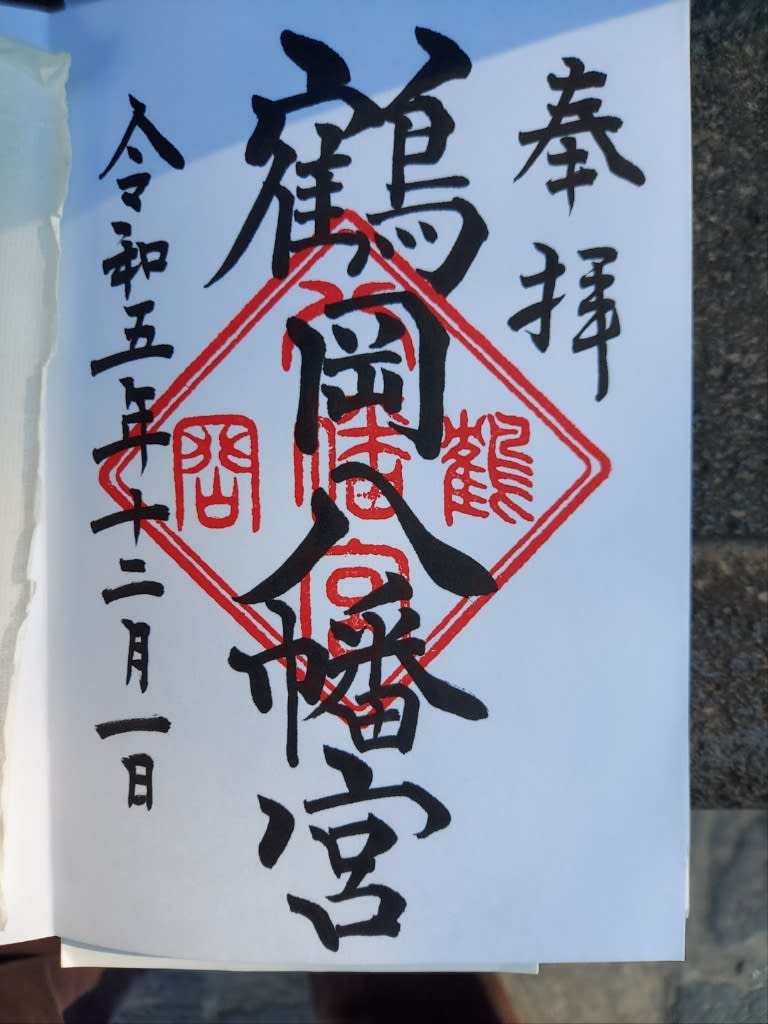 奉拝
鶴岡八幡宮
令和五年十二月一日
鶴
八幡宮
岡